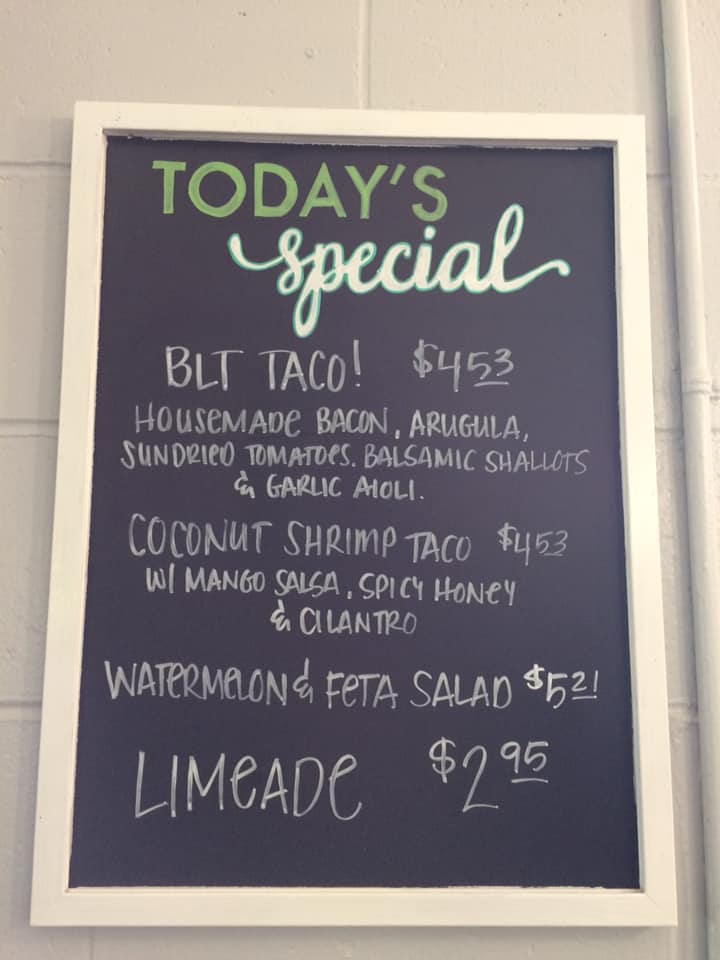 TODAY'S
special
BLT TACO! $4.53
HOUSEMADE BACON, ARUGULA,
SUNDRIED TOMATOES. BALSAMIC SHALLOTS
& GARLIC AIOLI.
COCONUT SHRIMP TACO $4.53
W/ MANGO SALSA, SPICY HONEY
& CILANTRO
WATERMELON & FETA SALAD $5.21
LIMEADE $2.95